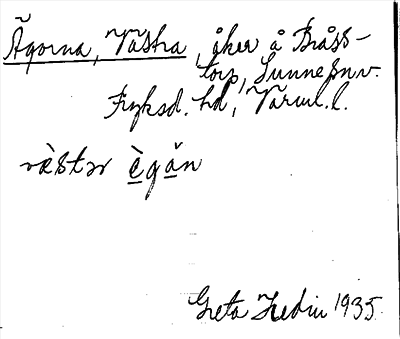 Ägorna, Västra, åker å Bråss-
torp, Sunne sn.
Fryksd. hd, Värml. l.
västər ègăn
Greta Hedin 1935.